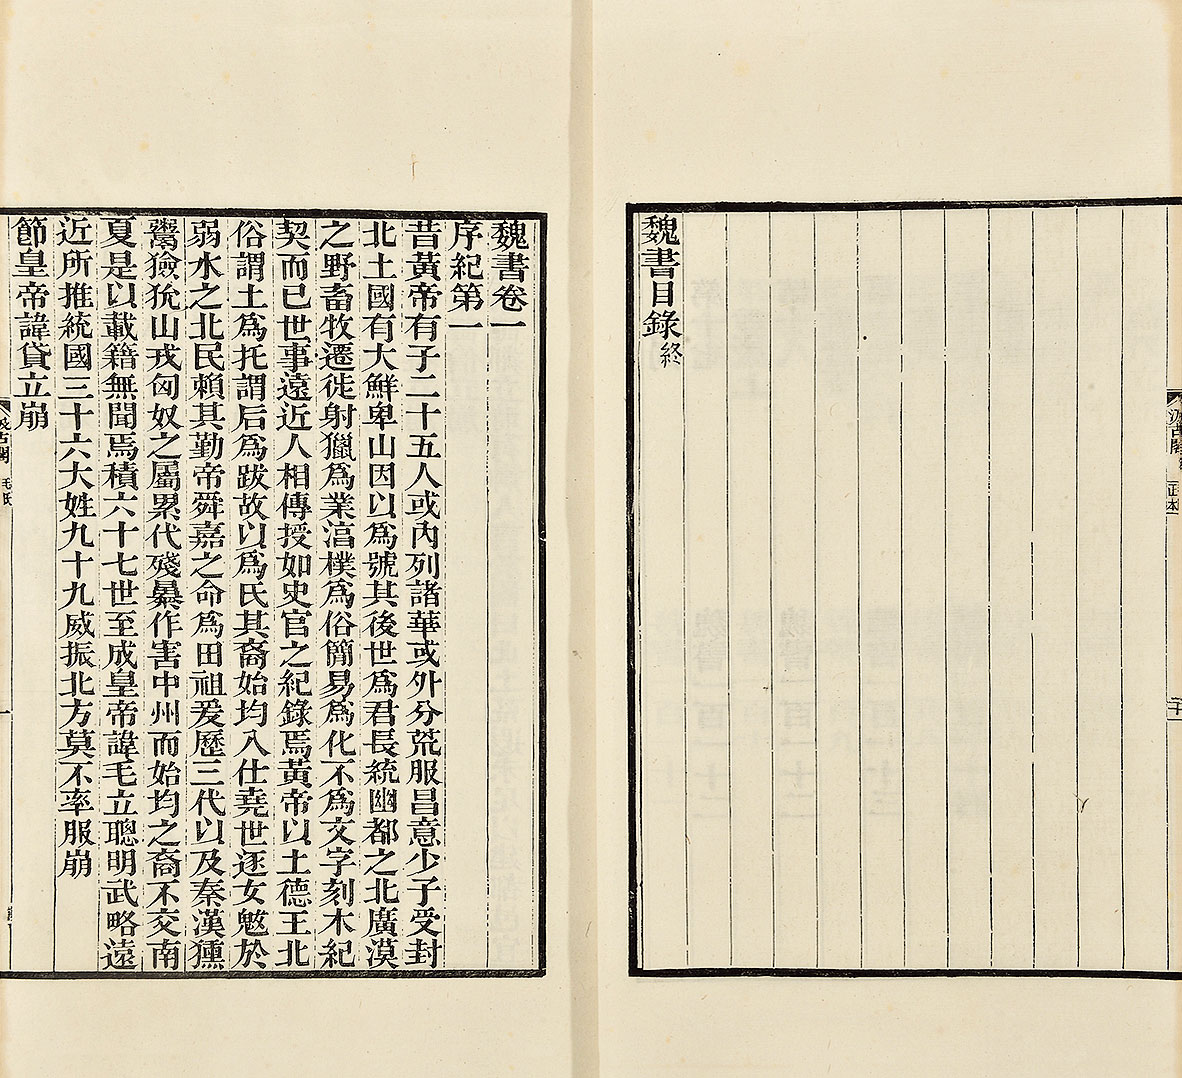 汲古閣
正本
魏書目錄終
魏書卷一
序紀第一
昔黃帝有子二十五人或內列諸華或外分荒服昌意少子受封
北土國有大鮮卑山因以爲號其後世爲君長統幽都之北廣漠
之野畜牧遷徙射獵爲業湻樸爲俗簡易爲化不爲文字刻木紀
契而已世事遠近人相傳授如史官之紀錄焉黃帝以土德王北
俗謂土爲托謂后爲跋故以爲氏其裔始均入仕堯世逐女魃於
弱水之北民賴其勤帝舜嘉之命爲田祖爰歷三代以及秦漢獯
鬻獫狁山戎匈奴之屬累代殘㬥作害中州而始均之裔不交南
夏是以載籍無聞焉積六十七世至成皇帝諱毛立聰明武略遠
近所推統國三十六大姓九十九威振北方莫不率服崩
節皇帝諱貸立崩
汲古閣
毛氏
一